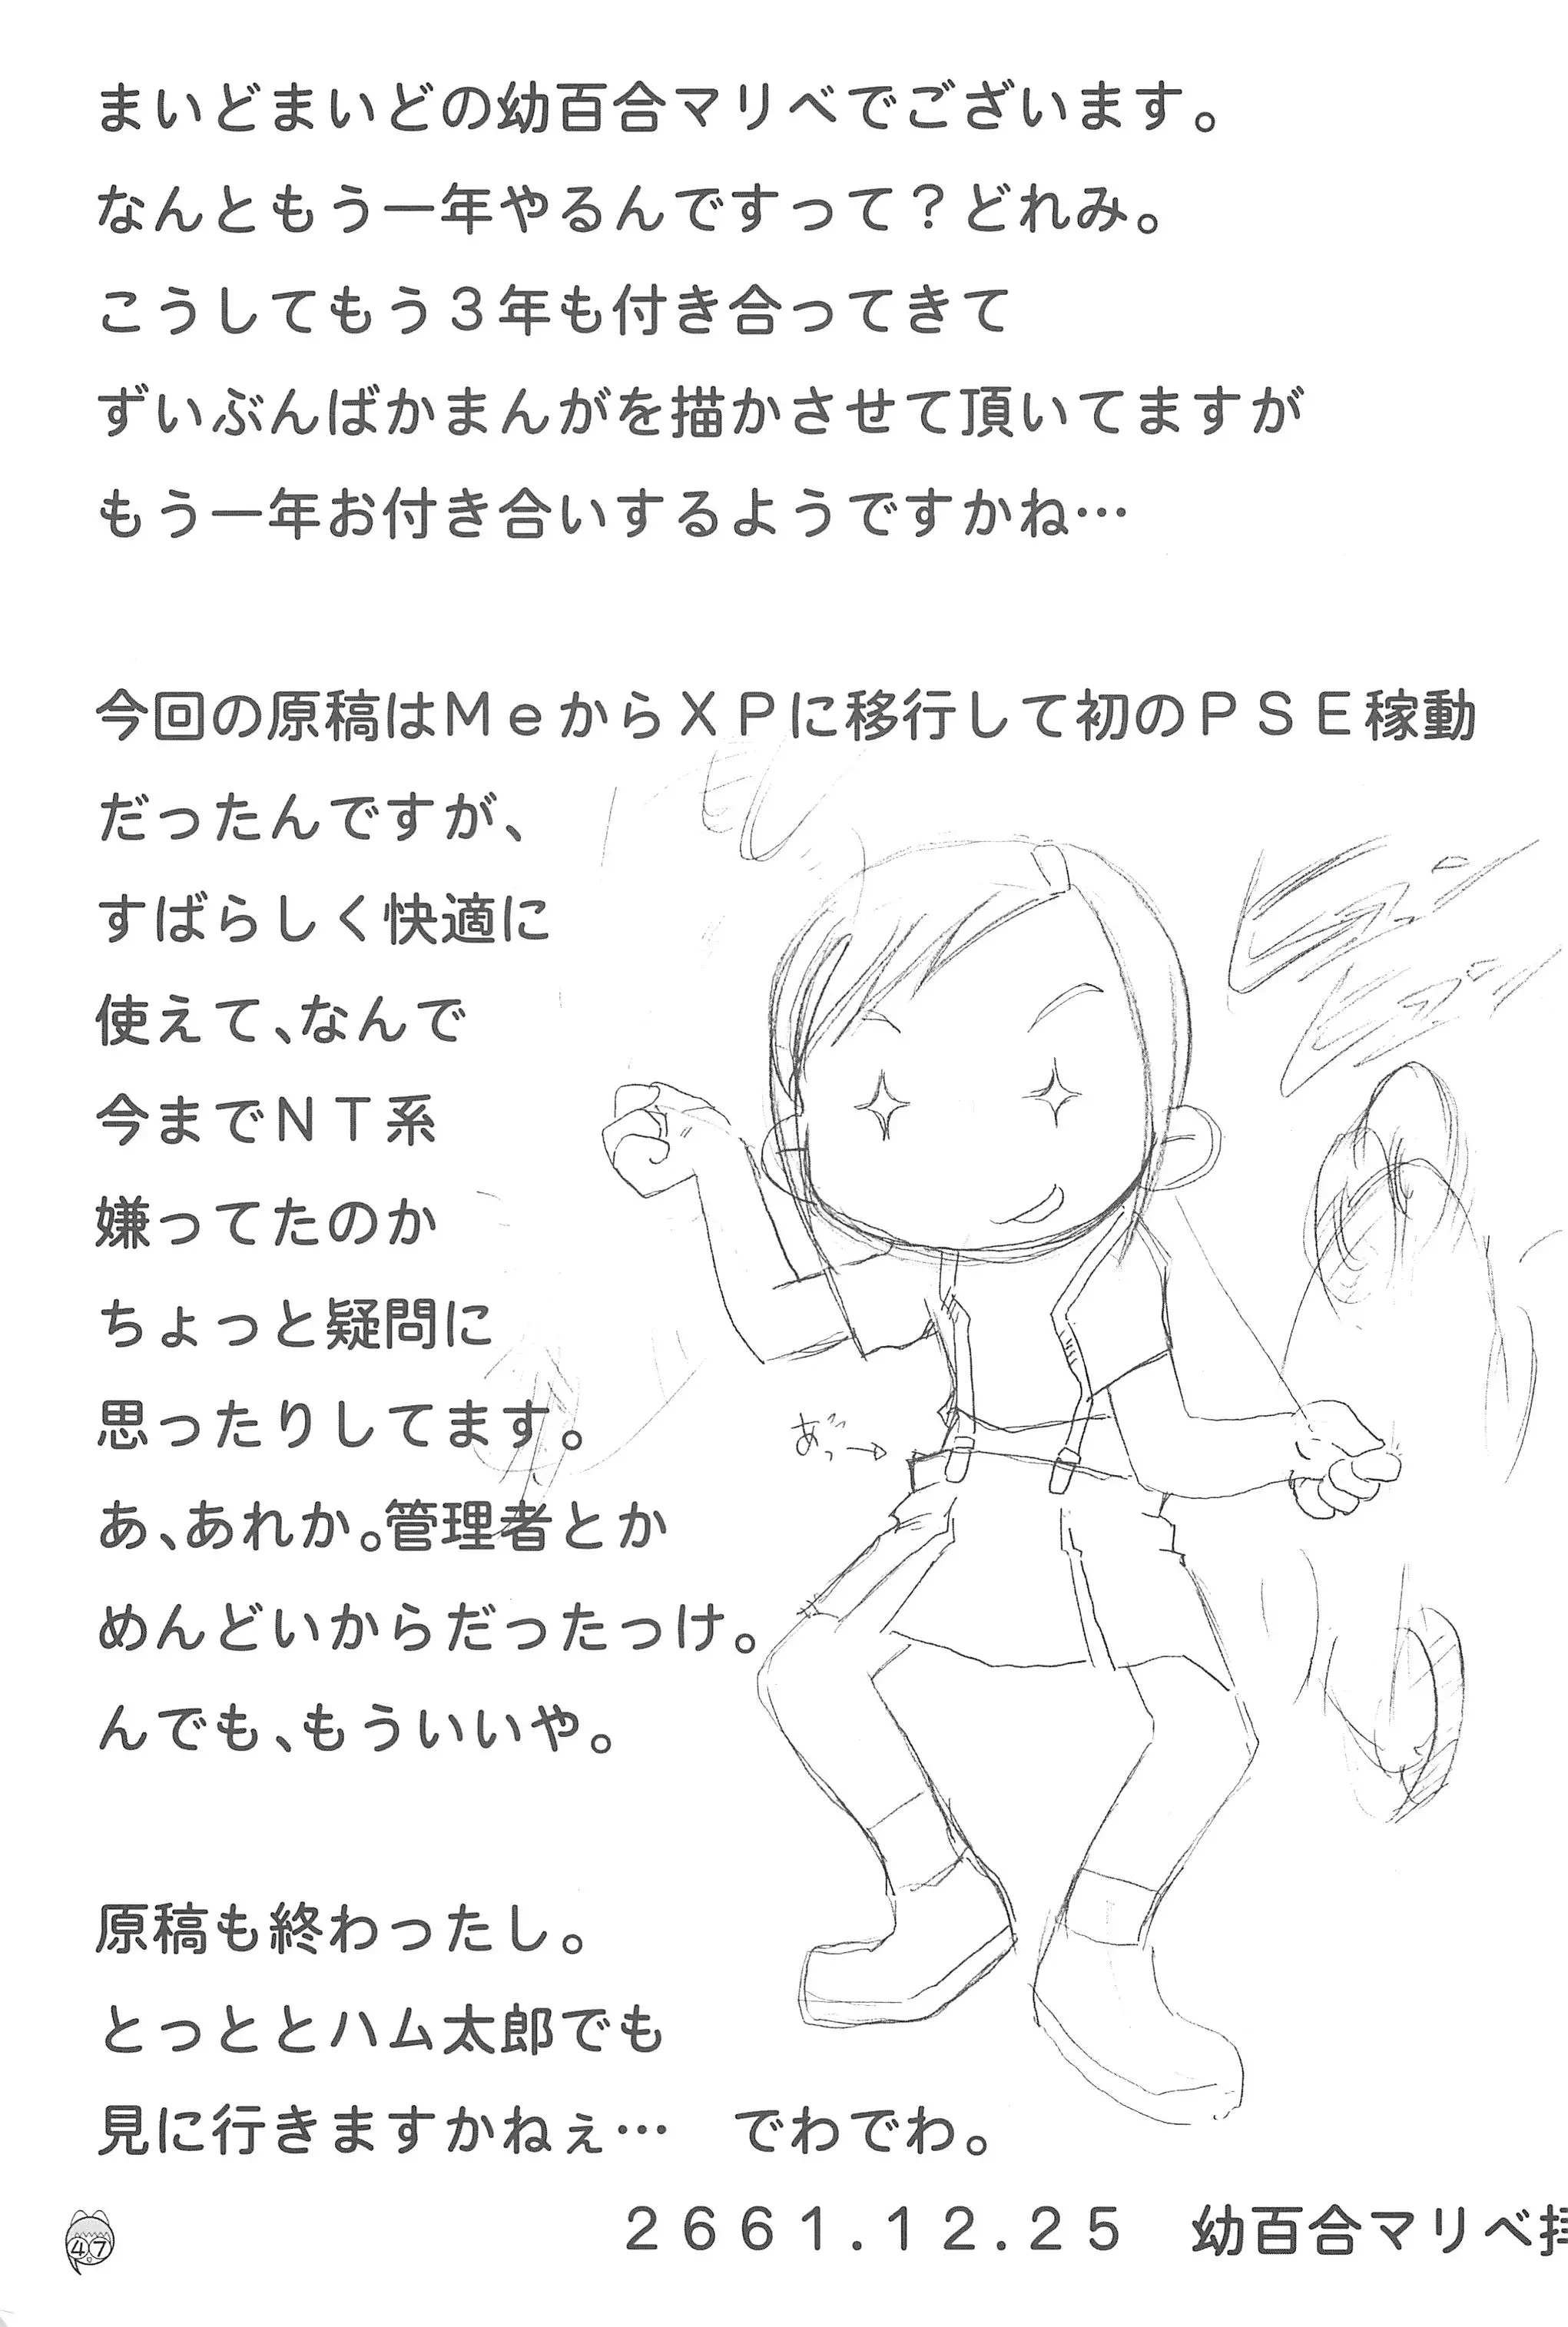 まいどまいどの幼百合マリベでございます。
なんともう一年やるんですって？どれみ。
こうしてもう３年も付き合ってきて
ずいぶんばかまんがを描かせて頂いてますが
もう一年お付き合いするようですかね…
今回の原稿はＭｅからＸＰに移行して初のＰＳＥ稼動
だったんですが、
すばらしく快適に
使えて、なんで
今までＮＴ系
嫌ってたのか
ちょっと疑問に
思ったりしてます。
あ、あれか。管理者とか
めんどいからだったっけ。
んでも、もういいや。
原稿も終わったし。
とっととハム太郎でも
見に行きますかねぇ…　でわでわ。
２６６１.１２.２５　幼百合マリベ拝
47